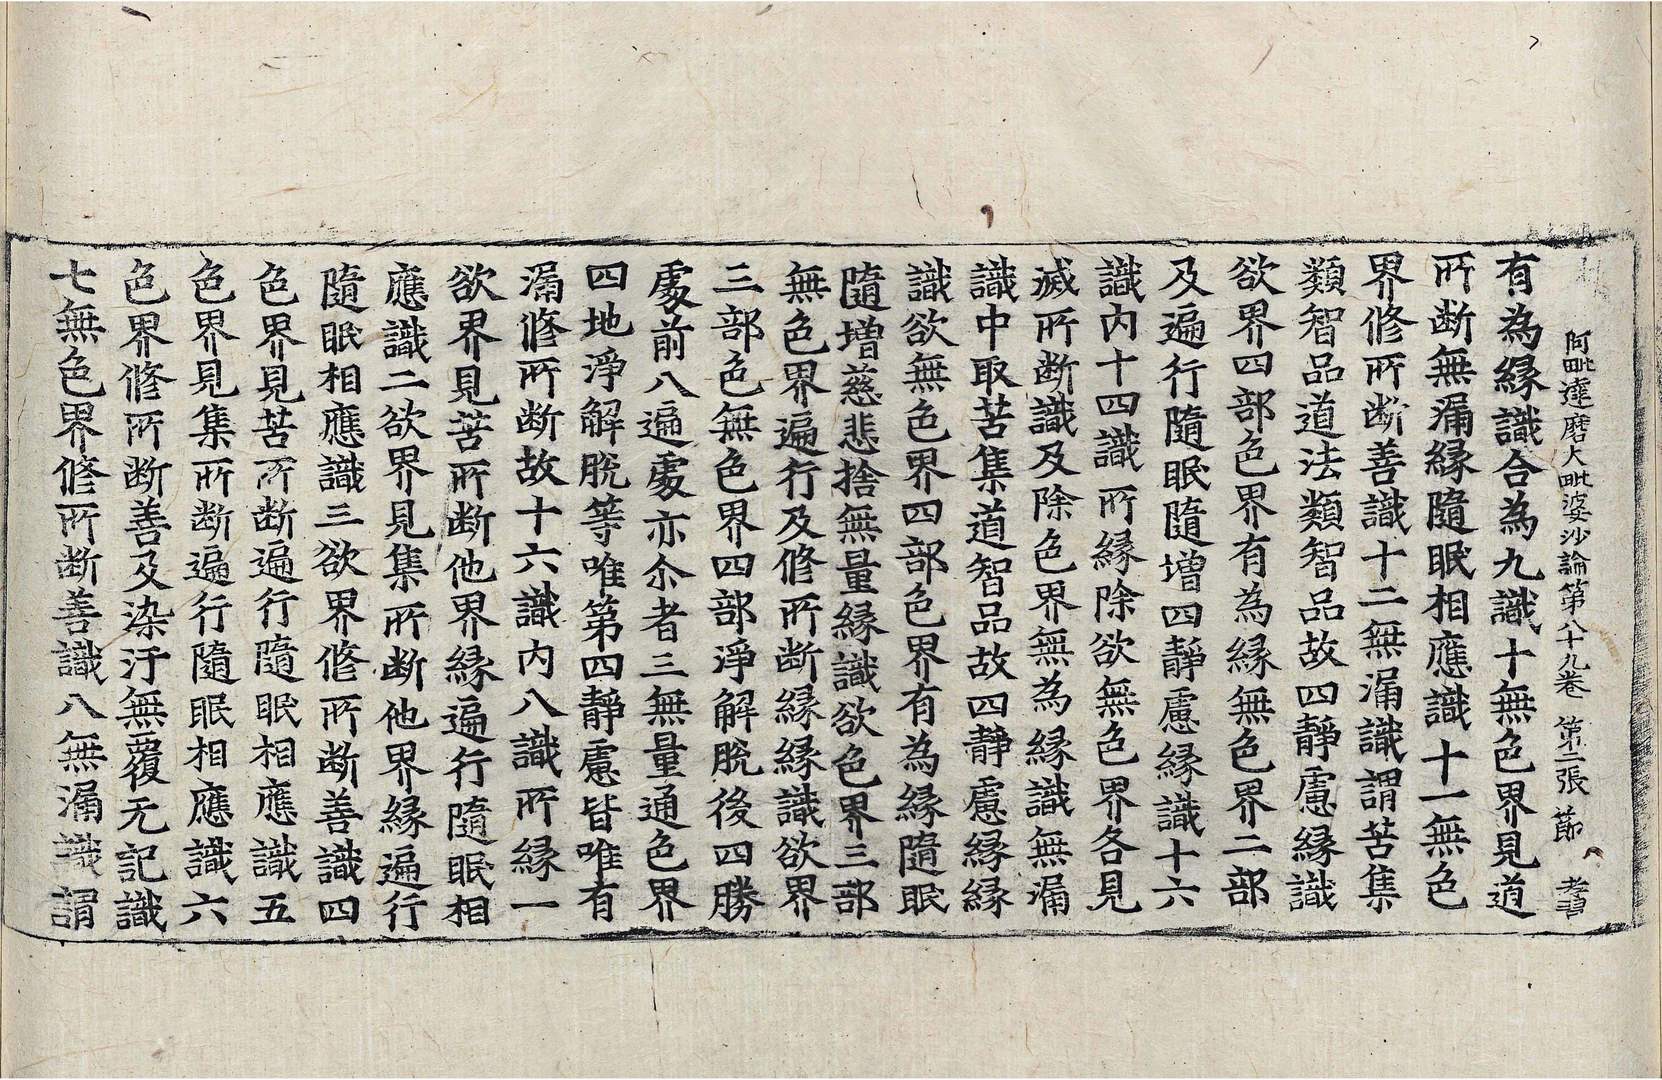 阿毗達磨大毗婆沙論第八十九卷 第二張 節 孝書
有為緣識合為九識十無色界見道
所断無漏緣隨眠相應識十一無色
界修所断善識十二無漏識謂苦集
類智品道法類智品故四靜慮緣識
欲界四部色界有為緣無色界二部
及遍行隨眠隨增四靜慮緣識十六
識内十四識所緣除欲無色界各見
滅所断識及除色界無為緣識無漏
識中取苦集道智品故四靜慮緣緣
識欲無色界四部色界有為緣隨眠
隨增慈悲捨無量緣識欲色界三部
無色界遍行及修所断緣緣識欲界
三部色無色界四部淨解脫後四勝
處前八遍處亦尒者三無量通色界
四地淨解脫等唯第四靜慮皆唯有
漏修所断故十六識内八識所緣一
欲界見苦所断他界緣遍行隨眠相
應識二欲界見集所断他界緣遍行
隨眠相應識三欲界修所断善識四
色界見苦所断遍行隨眠相應識五
色界見集所断遍行隨眠相應識六
色界修所断善及染汙無覆无記識
七無色界修所断善識八無漏識謂